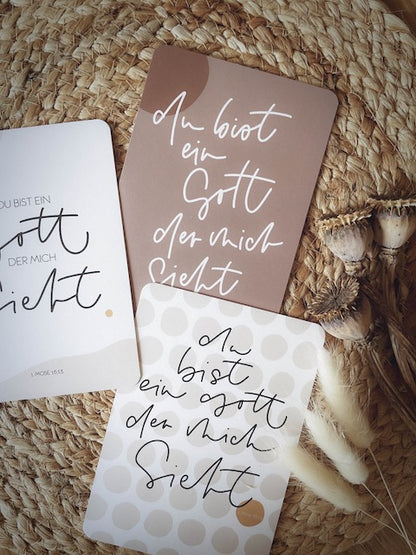 DU BIST EIN
Gott
DER MICH
Sieht
1. MOSE 16:13
du bist
ein
Gott
der mich
Sieht
du
bist
ein gott
der mich
Sieht